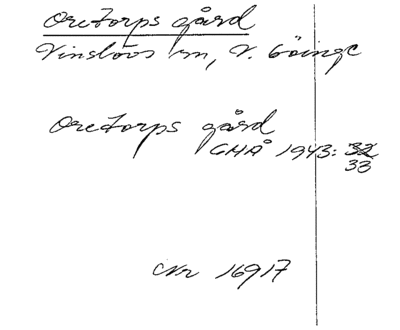 Oretorps gård
Vinslövs sn, V. Göinge
Oretorps gård
GHÅ 1943: 32
33
Nr 16917